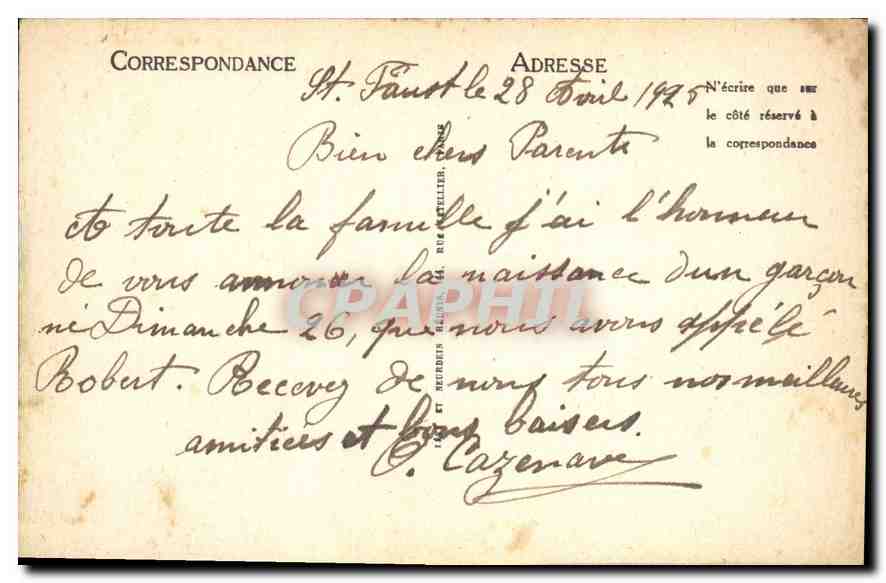 CORRESPONDANCE
ADRESSE
N'écrire que sur
le côté réservé à
la correspondance
St. Faust le 28 Avril 1925
Bien chers Parents
et toute la famille j'ai l'honneur
de vous annoncer la naissance d'un garçon
né Dimanche 26, que nous avons appélé
Robert. Recevez de nous tous nos meilleures
amitiées et bons baisers.
Cazenave
ET NEURDEIN RÉUNIS, 44, RUE LETELLIER, PARIS
CPAPHIL